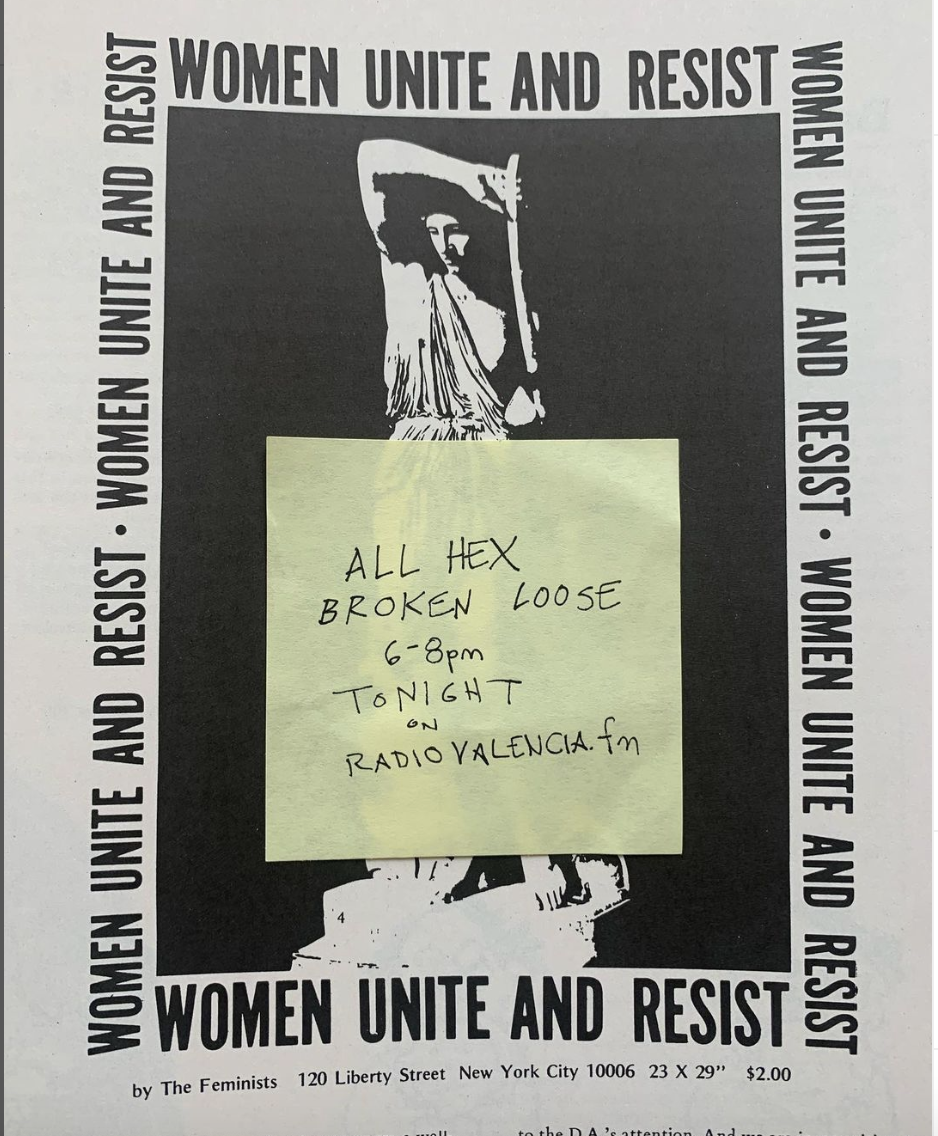 WOMEN UNITE AND RESIST
WOMEN UNITE AND RESIST • WOMEN UNITE AND RESIST
WOMEN UNITE AND RESIST • WOMEN UNITE AND RESIST
ALL HEX
BROKEN LOOSE
6-8pm
TONIGHT
ON
RADIOVALENCIA.fm
4
WOMEN UNITE AND RESIST
by The Feminists 120 Liberty Street New York City 10006 23 X 29” $2.00
to the D.A.'s attention. And